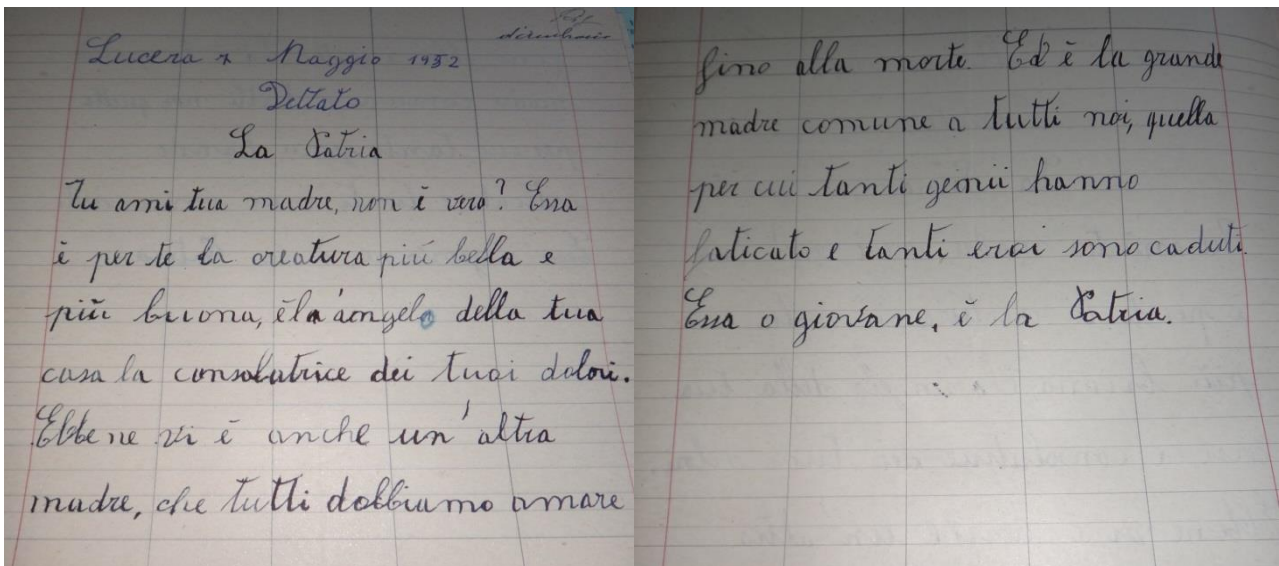 Lucera 7 Maggio 1952
Dettato
La Patria
Tu ami tua madre, non è vero? Essa
è per te la creatura più bella e
più buona, èla'angelo della tua
casa la consolatrice dei tuoi dolori.
Ebbe ne vi è anche un'altra
madre, che tutti dobbiamo amare
fino alla morte. Ed è la grande
madre comune a tutti noi, quella
per cui tanti genii hanno
faticato e tanti eroi sono caduti.
Essa o giovane, è la Patria.